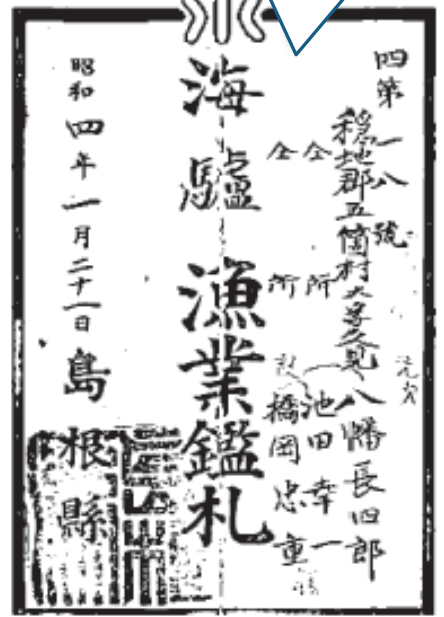 四第一八號
穏地郡五箇村大字久見 八幡長四郎
仝所 池田幸一
仝所 橋岡忠重
海驢漁業鑑札
昭和四年一月二十一日 島根縣